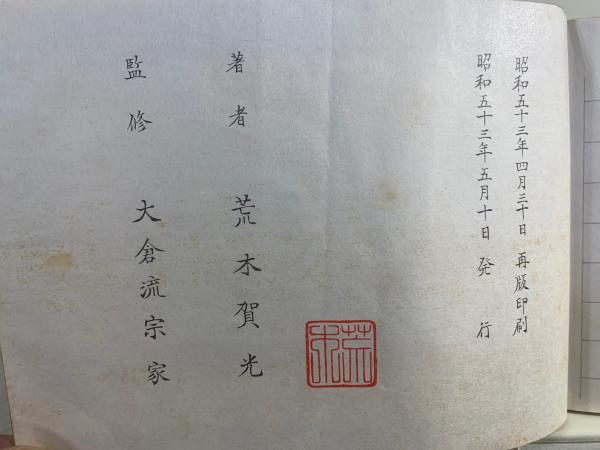 昭和五十三年四月三十日 再版印刷
昭和五十三年五月十日 発行
荒木
著者 荒木賀光
監修 大倉流宗家